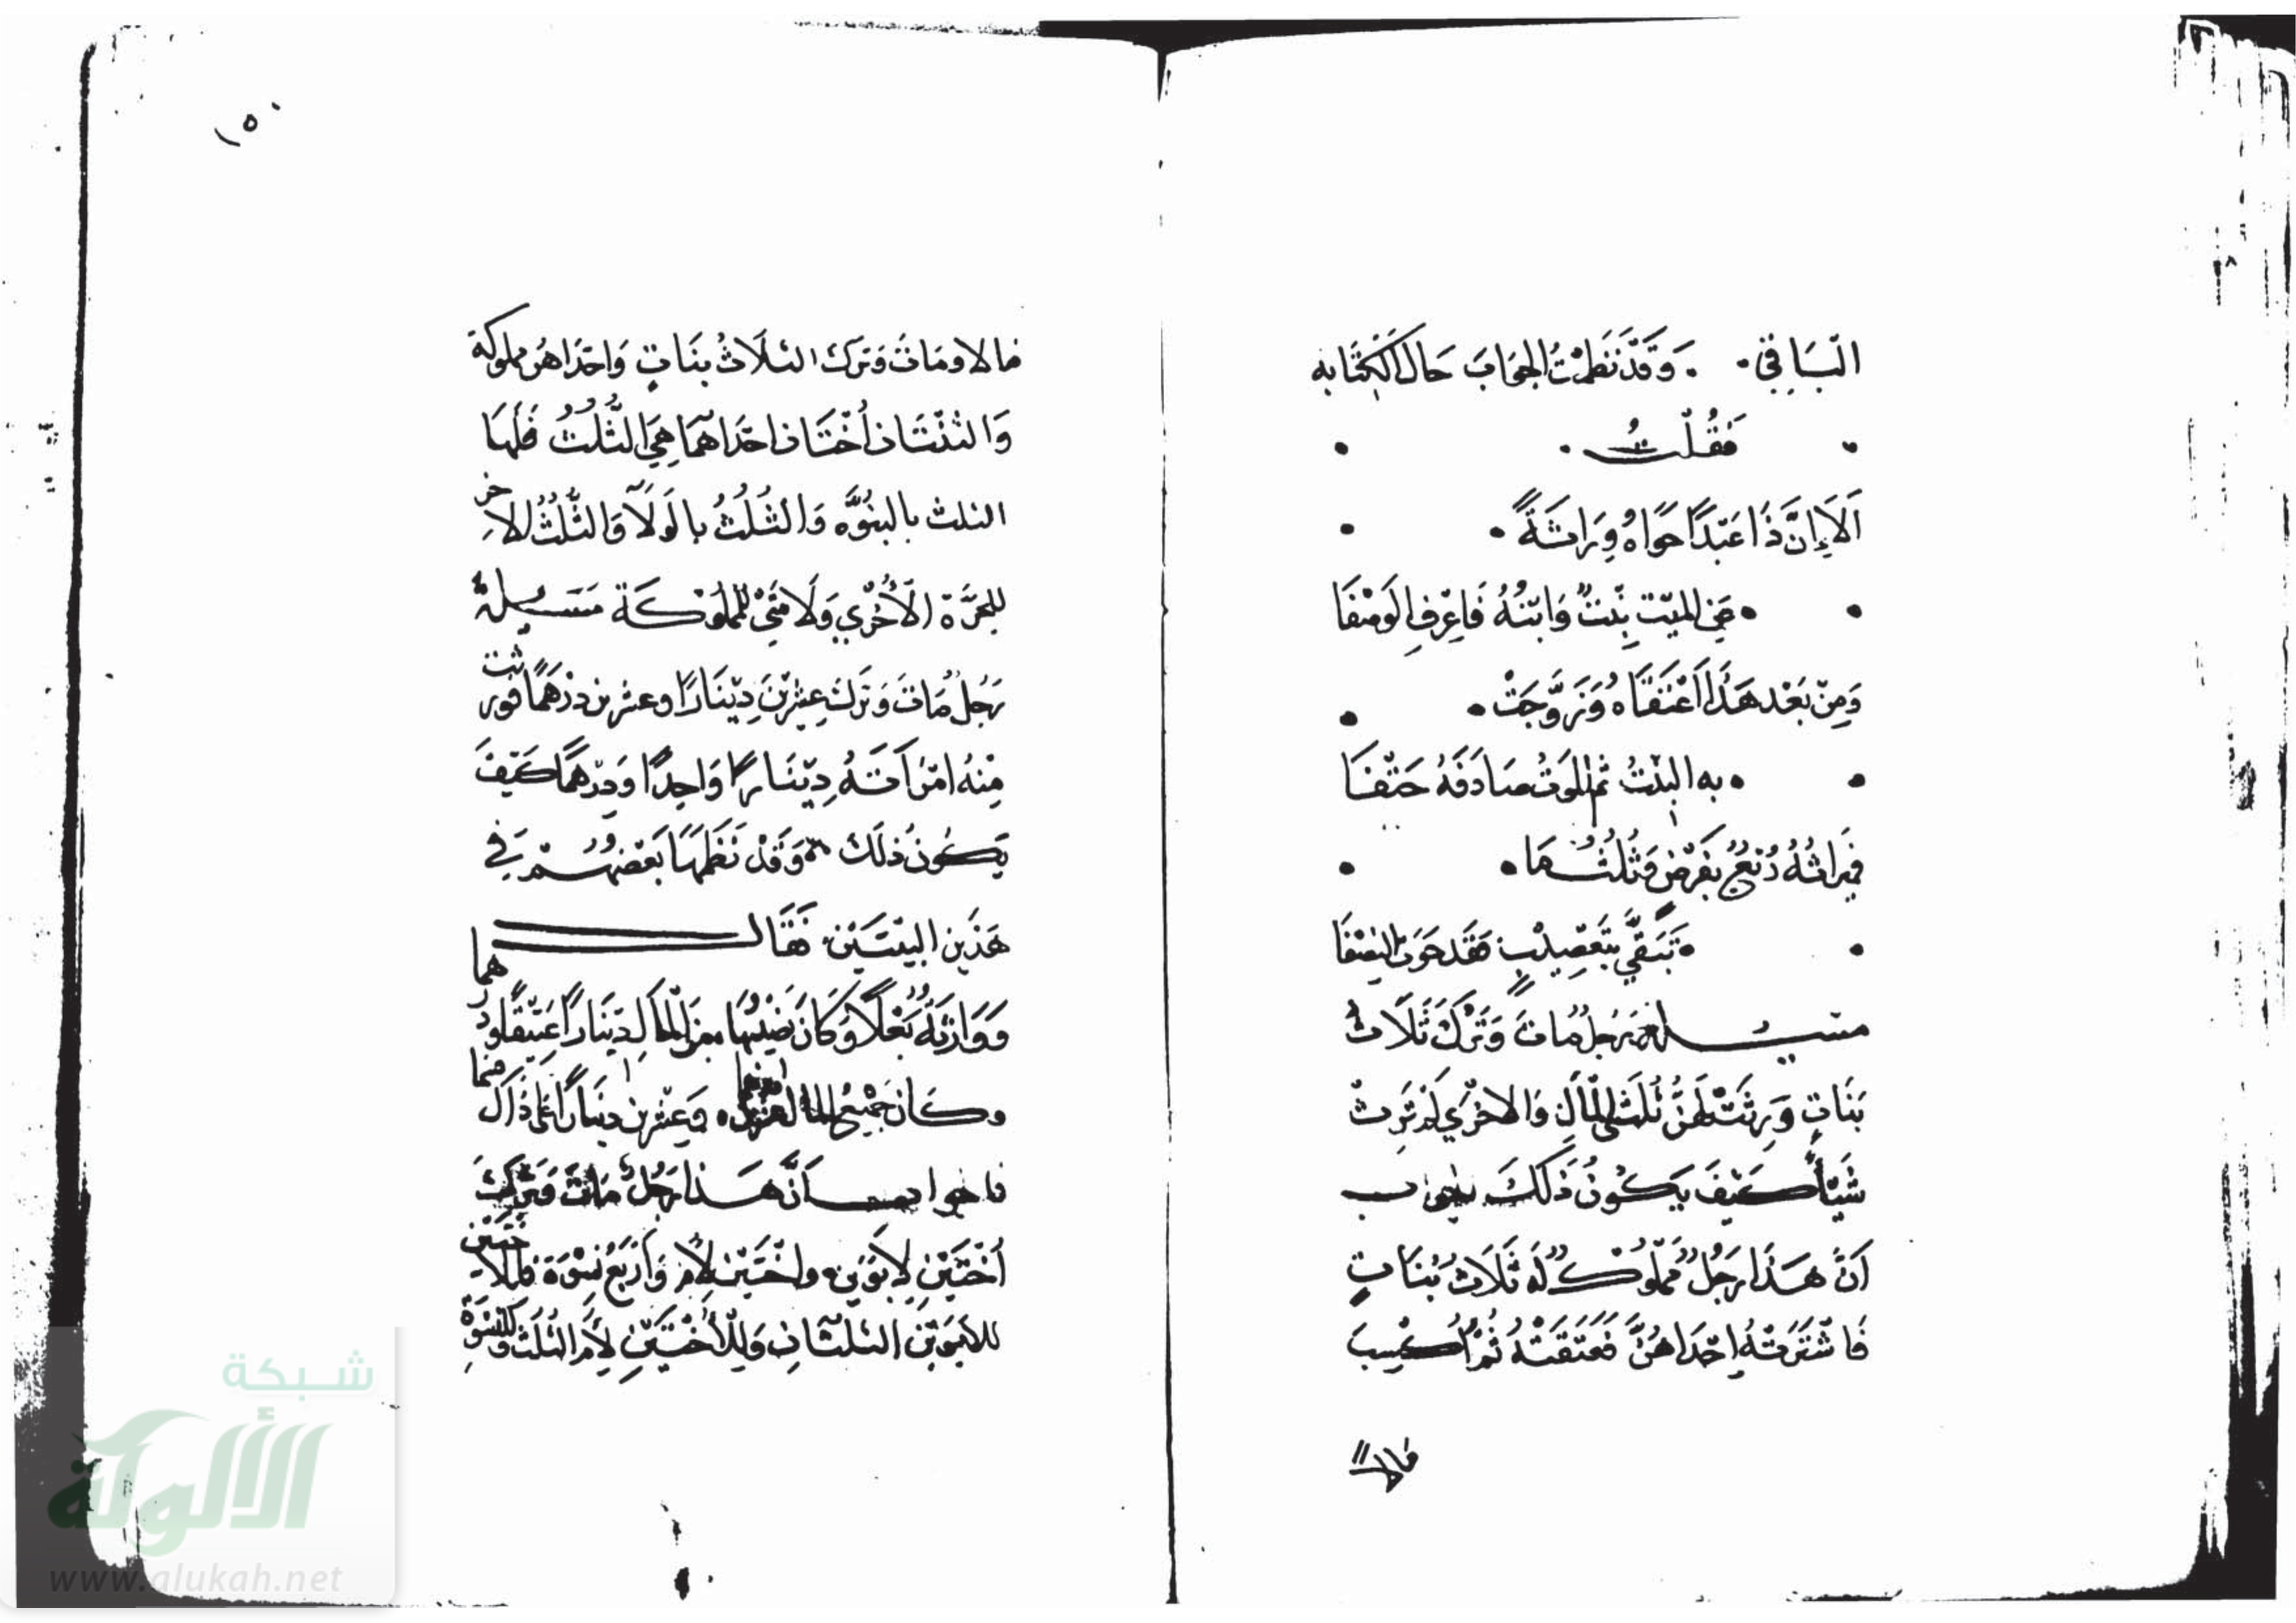 البَاقِي ۰ ۰ وَقَدْ نَظَمْتُ الجَوَابَ حَالَ الْكِتَابه
فَقُلْتُ
أَلَا إِنَّ ذَا عَبْدًا حَوَاهُ وِرَاثَةً
عَنِ الميّت بِنْتٌ وَابْنُهُ فَاعْرِفِ الوَصْفَا
وَمِنْ بَعْدِ هَذَا أَعْتَقَاهُ وَزُوِّجَتْ
به البِنْتُ ثم الموتُ صَادَفَهُ حَتْفَا
فميراثُهُ رُبْعٌ بفَرْضٍ وَثُلثُهَا
تَبَقَّى بتَعْصِيبٍ فقد حَوَتِ النِصْفَا
مسئلة رَجُلٌ مَاتَ وَتَرَكَ ثَلَاثُ
بَنَاتٍ وَرِثَتْ لَهنَّ ثُلثي المَالِ وَالاخرَي لم تَرِثْ
شَيْأً كَيْفَ يَكُونُ ذَلِكَ الجواب
أَنَّ هَذَا رَجُلٌ مَمْلُوكٌ لَهُ ثَلَاثُ بَنَاتٍ
فَاشْتَرَتْهُ إحْدَاهُنَّ فَعَتَقَتْهُ ثُمَّ اكْتَسَبَ
مالا
مالا ومَاتَ وَتَرَكَ الثلَاثُ بنَاتٍ وَاحْدَاهُن مملوكة
وَالثنْتَان أُخْتَان احْدَاهُمَا هِيَ الثُّلُثُ فَلَهَا
الثلث بالبنُوَّه وَالثُلُثُ بالْوَلَآ وَالثُّلُثُ الآخر
للحُرَّة الأُخْرَي وَلَا شَيْ للمَمْلُوكَة مَسْئلة
رَجُل مَاتَ وَتَرَكَ عِشْرِينَ دِينَارًا وعشرين درْهَمًا فورثت
مِنْهُ امْرَأَتَهُ دِينَارًا وَاحِدًا وَدِرْهَمًا كَيْفَ
يَكُونُ ذَلِكَ وَقَدْ نَظَمَهَا بَعْضُهُمْ في
هَذين البيتَيْن فَقَالَ
وَوَارِثَةٌ بَعْلًا وَكَانَ نَصِيبُهَا مِنَ المَالِ دِينَارًا عَتِيقًا ودرهما
وكَانَ جَمِيعُ المال عشرين وَعِشْرين دينَارًا عَلى ذَاكَ
فَالجواب أَنَّ هَذا رَجُلٌ مَاتَ وَتَرَكَ
أُخْتَيْنِ لأَبَوَيْنِ وأخْتَيْن لِأُم وَأَرْبَعُ نِسْوَة فللأختين
للأبَوَيْن الثلثَان وَلِلْأُخْتَيْنِ لِأُم الثُلُثُ وَللنِسْوَةِ